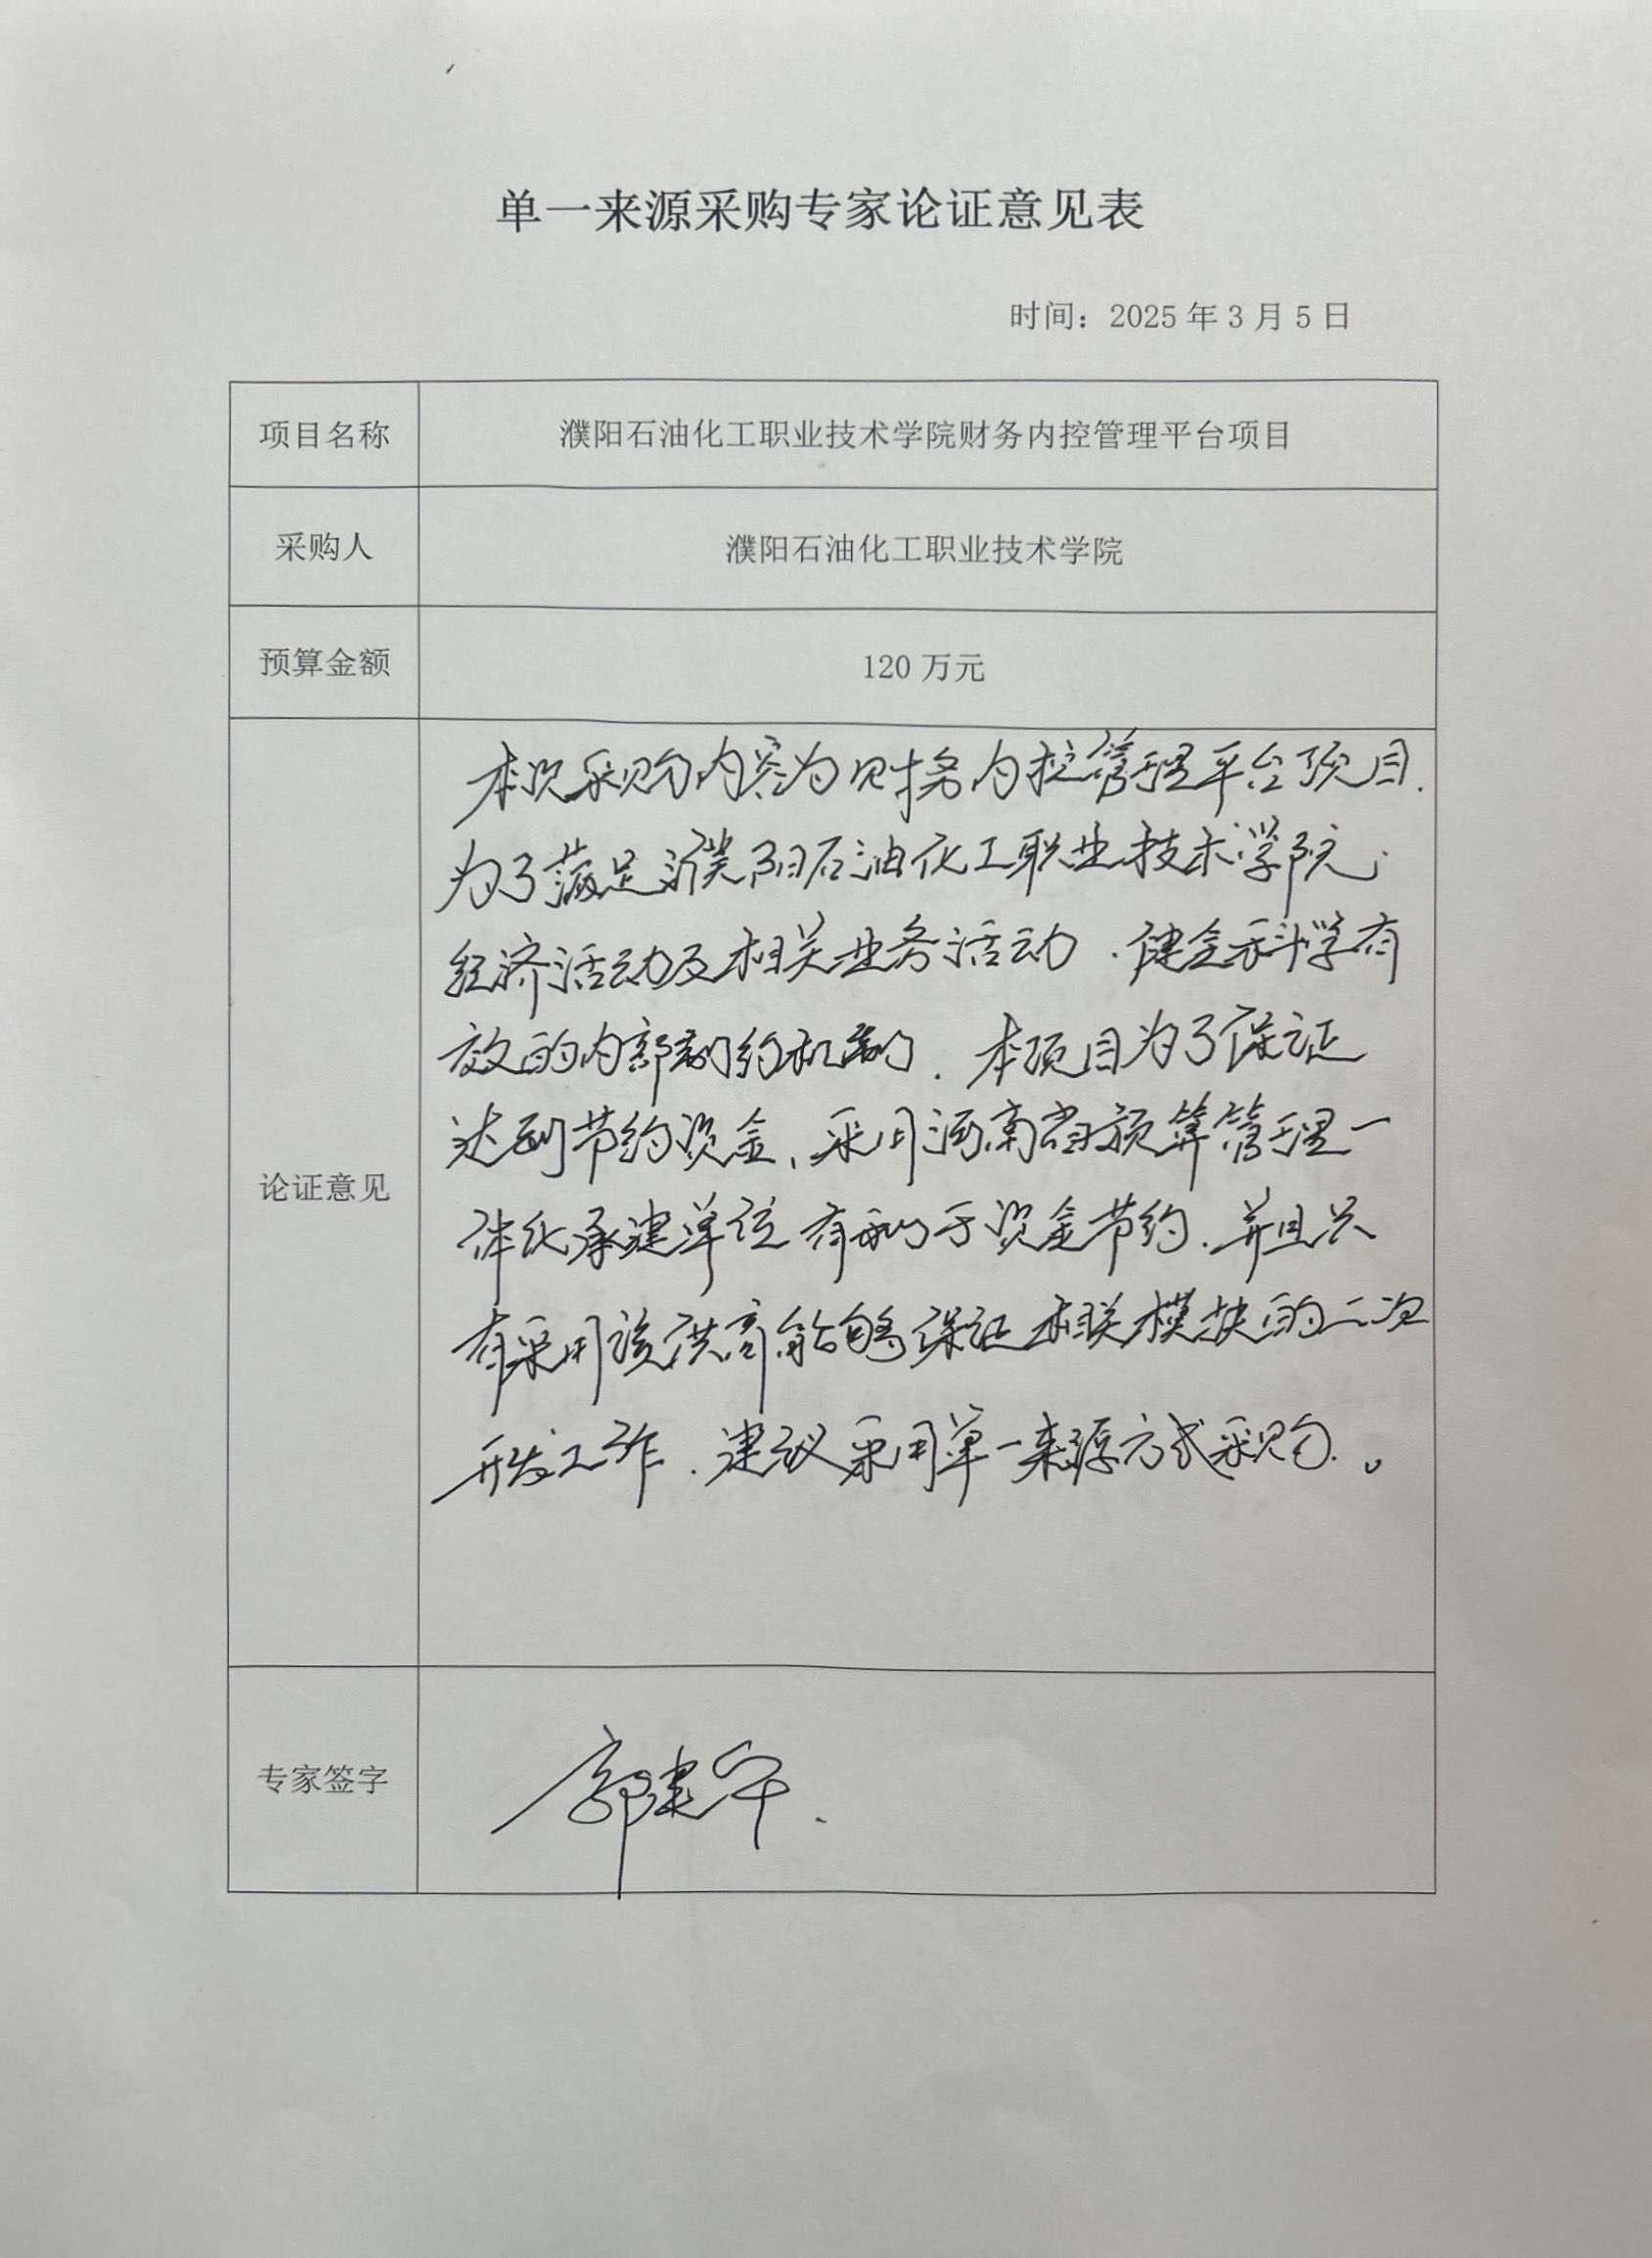 单一来源采购专家论证意见表
时间：2025年3月5日
项目名称 濮阳石油化工职业技术学院财务内控管理平台项目
采购人 濮阳石油化工职业技术学院
预算金额 120万元
论证意见
本次采购内容为财务内控管理平台项目.
为了满足濮阳石油化工职业技术学院.
经济活动及相关业务活动.健全科学有
效的内部制约机制.本项目为了保证
达到节约资金、采用河南省预算管理一
体化承建单位有利于资金节约.并且只
有采用该供商能够保证相联模块的二次
开发工作.建议采用单一来源方式采购.。
专家签字 郭建军.